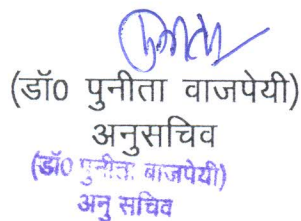 पुनीता
(डॉ0 पुनीता वाजपेयी)
अनुसचिव
(डॉ0 पुनीता बाजपेयी)
अनु सचिव